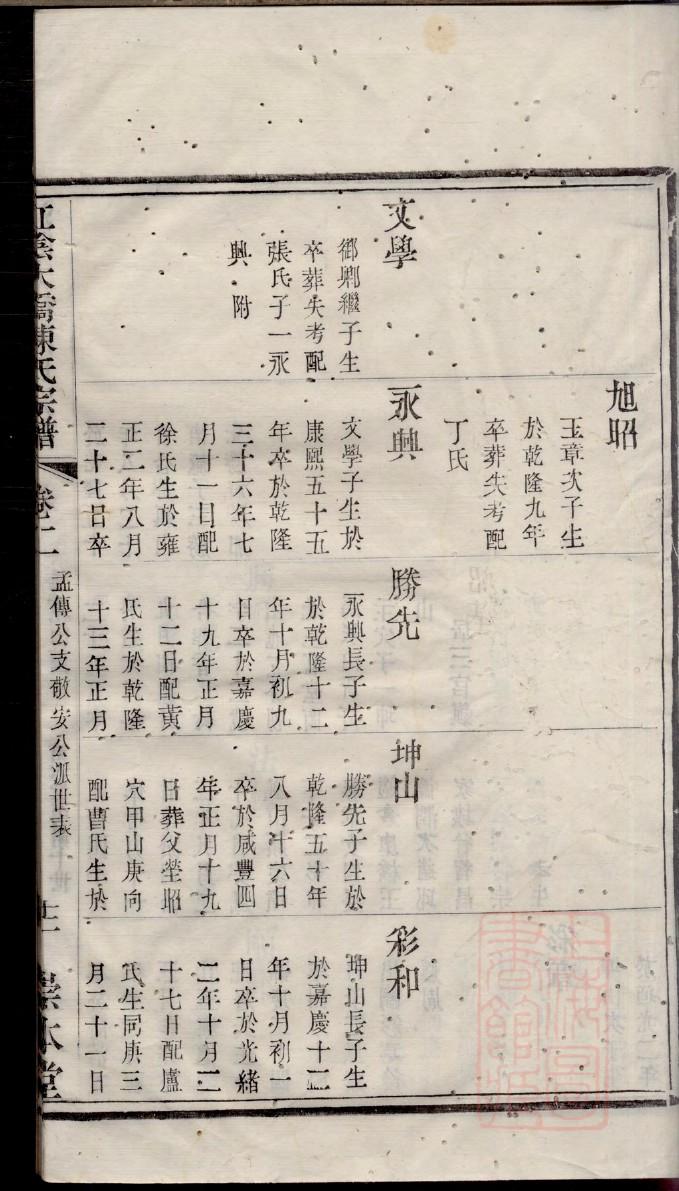 旭昭
玉章次子生
於乾隆九年
卒葬失考配
丁氏
文學
鄉繼子生
卒葬失考配
張氏子一永
興附
永興
文學子生於
康熙五十五
年卒於乾隆
三十六年七
月十一日配
徐氏生於雍
正二年八月
二十七日卒
勝先
永興長子生
於乾隆十二
年十月初九
日卒於嘉慶
十九年正月
十二日配黃
氏生於乾隆
十三年正月
坤山
勝先子生於
乾隆五十年
八月十六日
卒於咸豐四
年正月十九
日葬父塋昭
穴甲山庚向
配曹氏生於
彩和
坤山長子生
於嘉慶十二
年十月初一
日卒於光緒
二年十月二
十七日配盧
氏生同庚三
月二十一日
江陰大橋陳氏宗譜
卷二
孟傳公支敬安公派世表
崇本堂